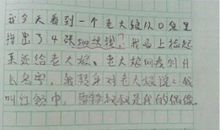 我今天看到一个老大娘从口袋里
掉出了4张,我马上捡起
来还给老大娘。老大娘问我叫什
么名字,我转身对老大娘说:我
叫红领巾。雷锋叔叔是我的偶像。